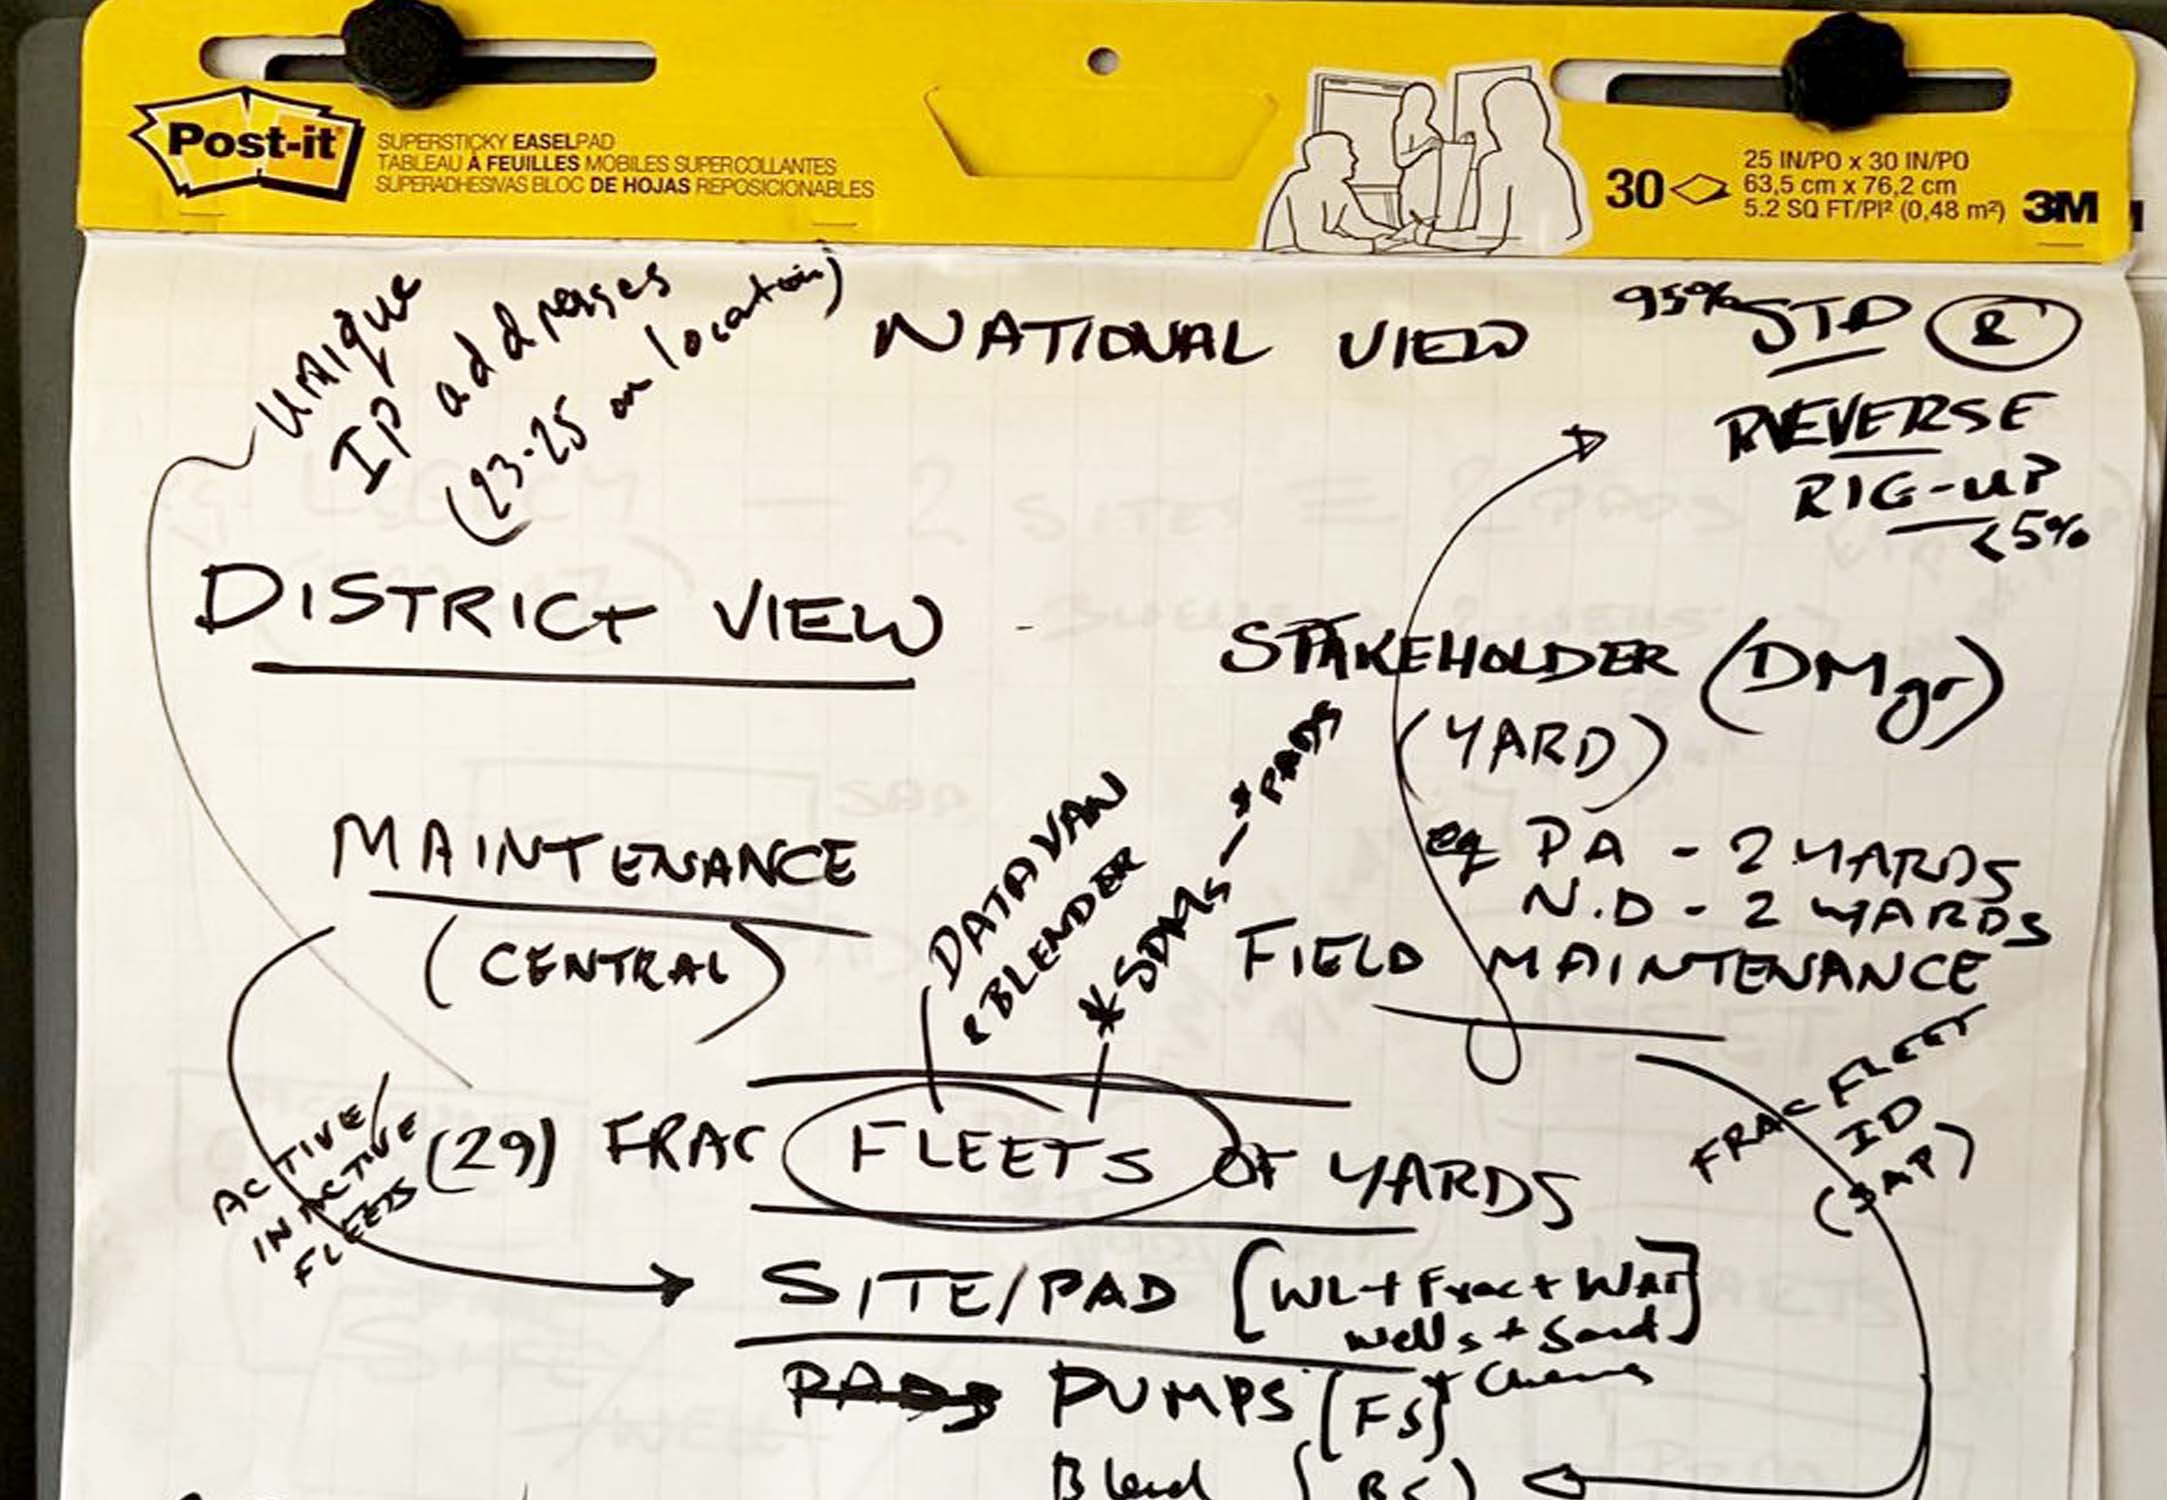 Post-it
SUPERSTICKY EASELPAD
TABLEAU À FEUILLES MOBILES SUPERCOLLANTES
SUPERADHESIVAS BLOC DE HOJAS REPOSICIONABLES
30
25 IN/PO x 30 IN/PO
63,5 cm x 76,2 cm
5.2 SQ FT/PI² (0,48 m²)
3M
UNIQUE
IP addresses
(23-25 on location)
NATIONAL VIEW
95% STD &
REVERSE
RIG-UP
<5%
DISTRICT VIEW
STAKEHOLDER (DMgr)
(YARD)
eg PA - 2 YARDS
N.D - 2 YARDS
MAINTENANCE
(CENTRAL)
DATA VAN
& BLENDER
* SDMs - * PADS
FIELD MAINTENANCE
FRAC FLEET
ID
(SAP)
ACTIVE/
INACTIVE
FLEETS
(29) FRAC FLEETS OF YARDS
SITE/PAD [WL + Frac + Wat]
wells + Sand
+ Chems
PUMPS [FS]
Blend (BS)